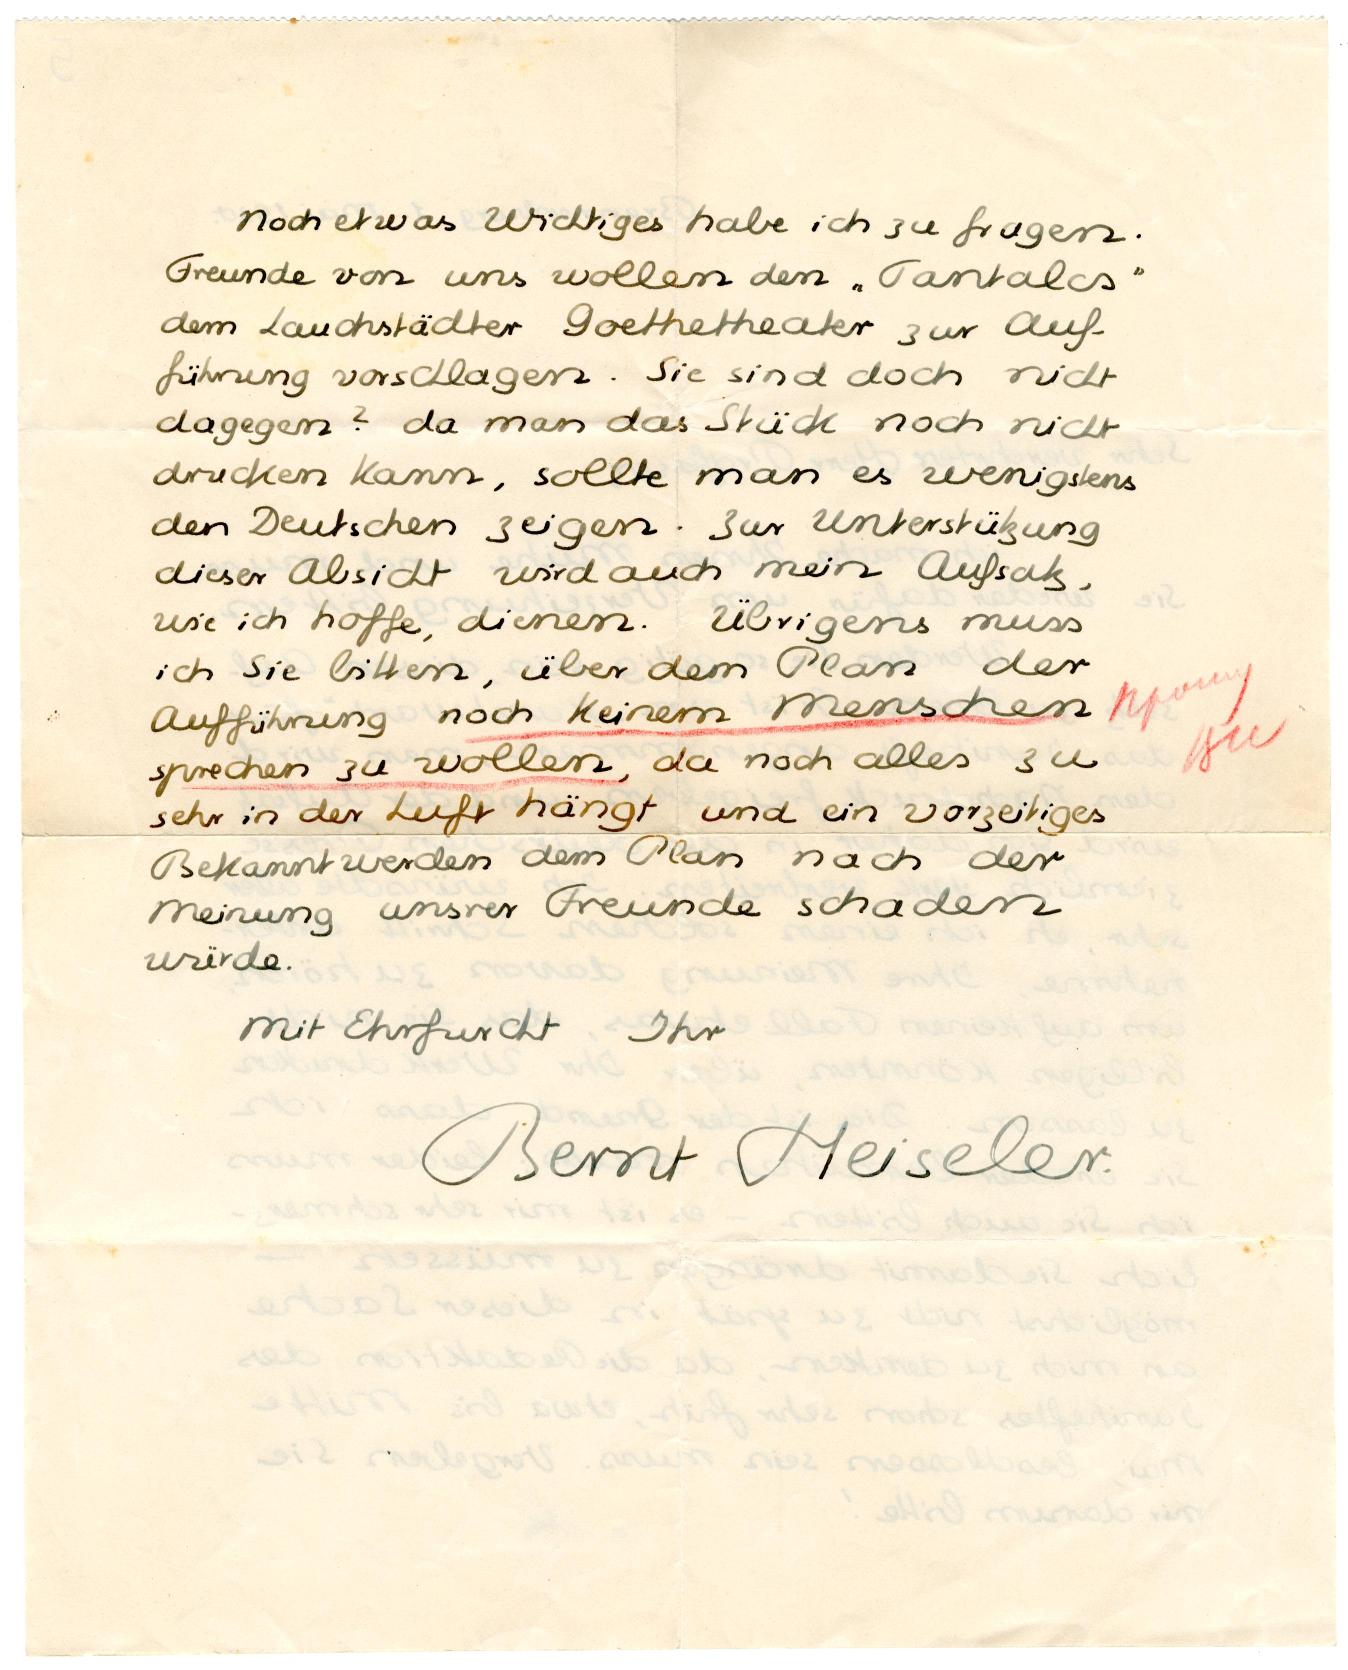 Noch etwas Wichtiges habe ich zu fragen.
Freunde von uns wollen den „Tantalos“
dem Lauchstädter Goethetheater zur Auf-
führung vorschlagen. Sie sind doch nicht
dagegen? da man das Stück noch nicht
drucken kann, sollte man es wenigstens
den Deutschen zeigen. Zur Unterstützung
dieser Absicht wird auch mein Aufsatz,
wie ich hoffe, dienen. Übrigens muss
ich Sie bitten, über dem Plan der
Aufführung noch keinem Menschen
sprechen zu wollen, da noch alles zu
sehr in der Luft hängt und ein vorzeitiges
Bekanntwerden dem Plan nach der
Meinung unsrer Freunde schaden
würde.
Mit Ehrfurcht Ihr
Bernt Heiseler.